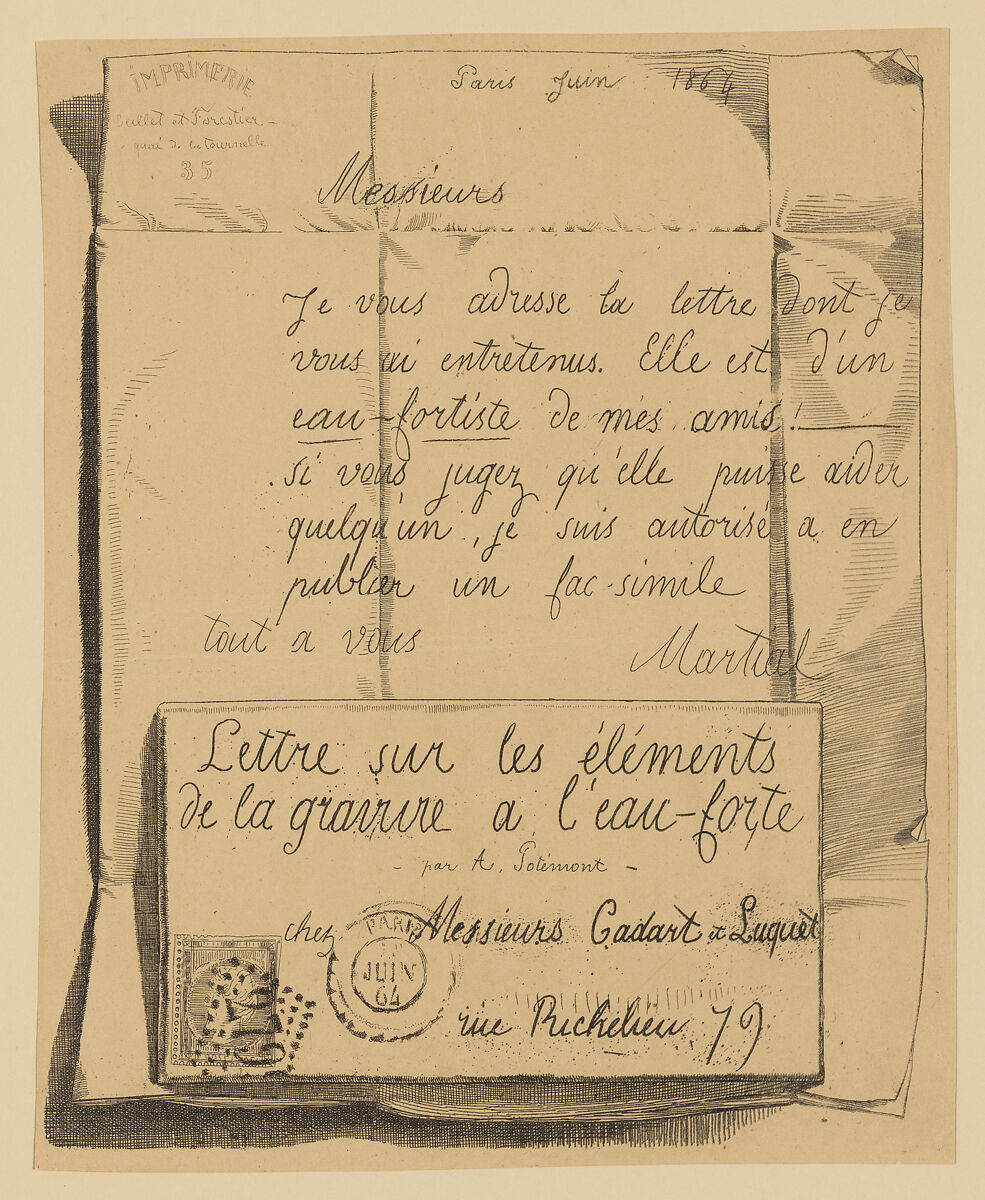 IMPRIMERIE
et Forestier
quai de la tournelle
35
Paris Juin 1864
Messieurs
Je vous adresse la lettre dont je
vous ai entretenus. Elle est d'un
eau-fortiste de mes amis!
si vous jugez qu'elle puisse aider
quelqu'un, je suis autorisé a en
publier un fac-simile
tout a vous
Martial
Lettre sur les éléments
de la gravure a l'eau-forte
- par A. Potémont -
chez Messieurs Cadart et Luquet
PARIS
JUIN
64
rue Richelieu 79